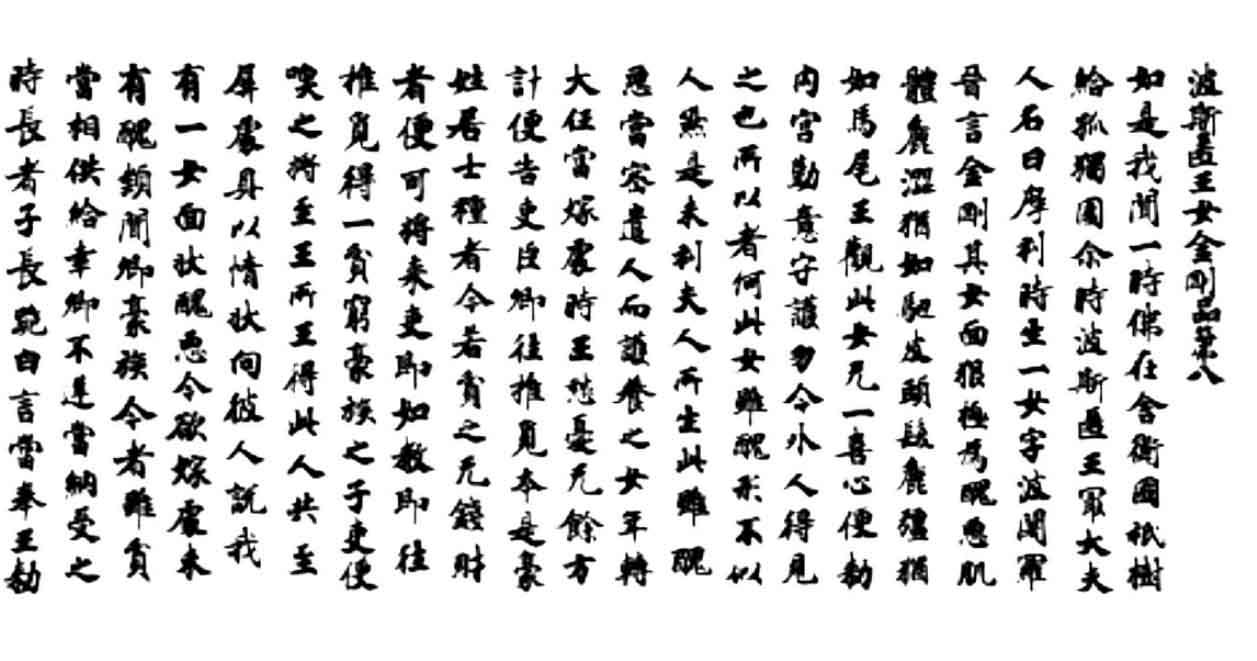 波斯匿王女金剛品第八
如是我聞一時佛在舍衛國祇樹
給孤獨園尒時波斯匿王冣大夫
人名曰摩利時生一女字波闍羅
晉言金剛其女面狠極為醜惡肌
體麁澀猶如駝皮頭髮麁彊猶
如馬尾王觀此女无一喜心便勅
内宮勤意守護勿令外人得見
之也所以者何此女雖醜形不似
人然是末利夫人所生此雖醜
惡當密遣人而護養之女年轉
大任當嫁處時王愁憂无餘方
計便告吏臣卿往推覓本是豪
姓居士種者今若貧乏无錢財
者便可將来吏即如教即往
推覓得一貧窮豪族之子吏便
喚之將至王所王得此人共至
屏處具以情狀向彼人說我
有一女面狀醜惡今欲嫁處未
有醜類聞卿豪族今者雖貧
當相供給幸卿不逆當納受之
時長者子長跪白言當奉王勅